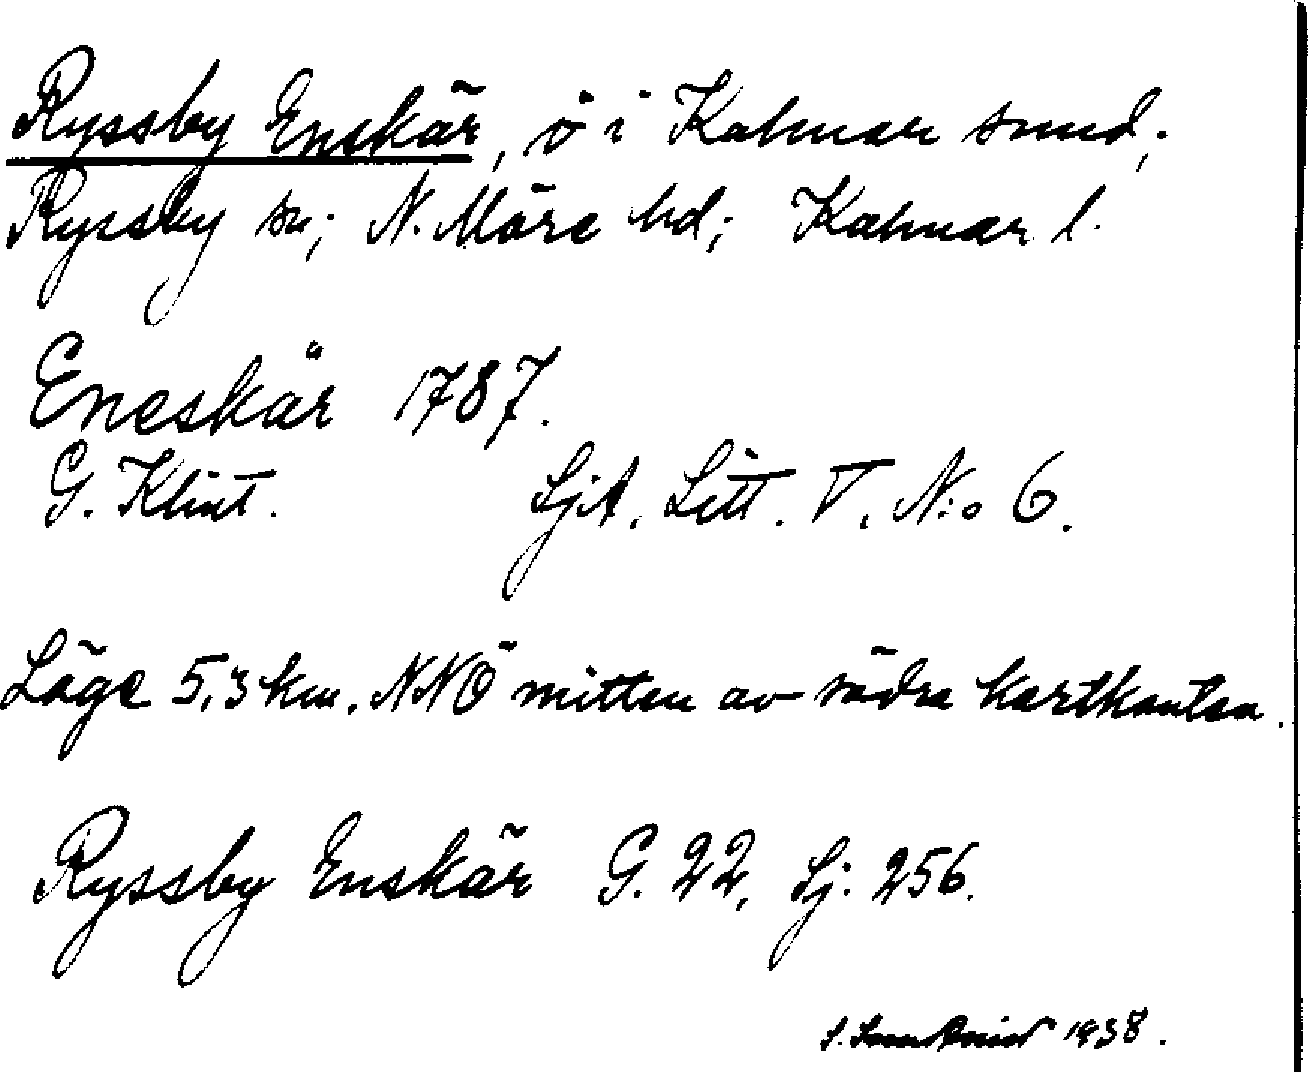 Ryssby Enskär, ö i Kalmar sund;
Ryssby sn; N. Möre hd; Kalmar l.
Eneskär 1787.
G. Klint. SjA. Litt. V. N:o 6.
Läge 5,3 km. NNÖ mitten av södra kartkanten.
Ryssby Enskär G. 22, Sj. 256.
1938.